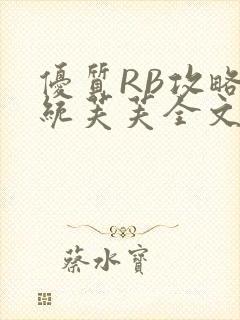 優質RB攻略
統芙芙全文
蔡水寶